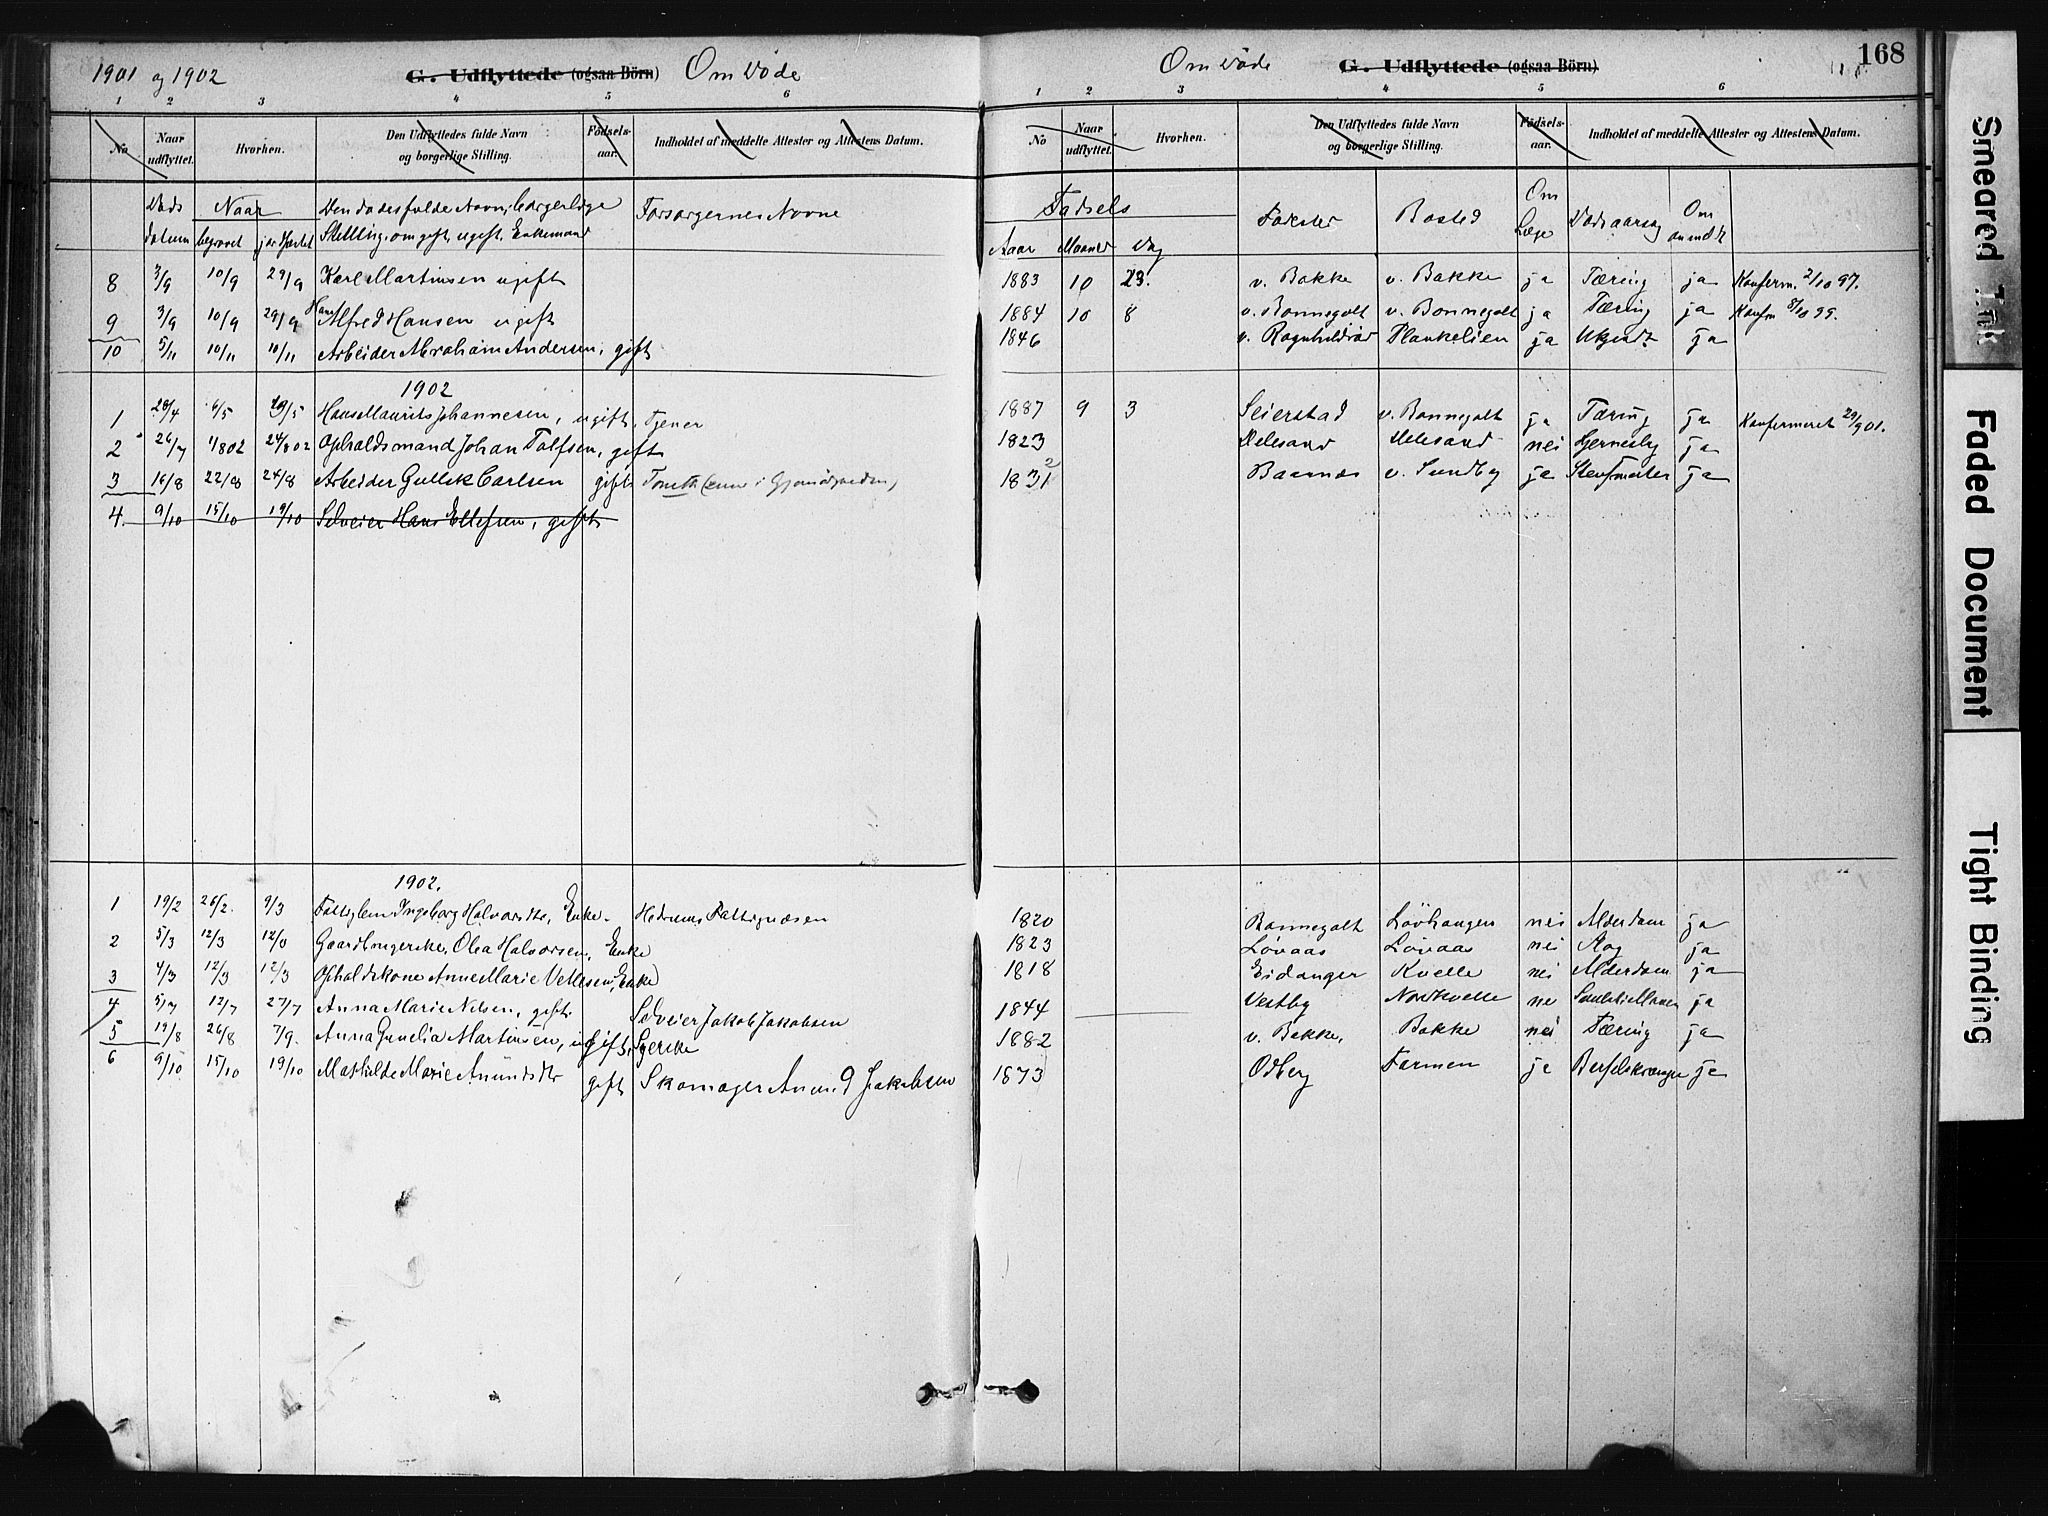 1901 og 1902
G. Udflyttede (ogsaa Börn) Om Døde
1 2 3 4 5 6
No
Naar udflyttet.
Hvorhen.
Den Udflyttedes fulde Navn og borgerlige Stilling.
Födsels-aar.
Indholdet af meddelte Attester og Attestens Datum.
Døds datum
Naar
begravet
jordfæstet
Den dødes fulde Navn, borgerlige
Stilling, om gift, ugift, Enkemand
Forsørgernes Navne
8 3/9 10/9 29/9 Karl Martinsen ugift
9 3/9 10/9 29/9 Hans Alfred Hansen ugift
10 5/11 10/11 10/11 Arbeider Abraham Andersen, gift
1902
1 28/4 6/5 Hans Maurits Johannesen, ugift, Tjener
2 26/7 1/8 02 24/8 02 Opholdsmand Johan Tolfsen, gift
3 16/8 22/8 24/8 Arbeider Gullik Carlsen gift
4. 9/10 15/10 19/10 Selveier Hans Ellefsen, gift
1902.
1 19/2 26/2. 9/3 Fattiglem Ingeborg Halvorsdtr, Enke. Hedrums Fattigvæsen
2 5/3 12/3 Gaardbrugerske, Olea Halvorsen, Enke
3 4/3 12/3 12/3 Opholdskone Anne Marie Vettesen, Enke
4 5/7 12/7 27/7 Anna Marie Nilsen, gift. Selveier Jakob Jakobsen
5 19/8 26/8 7/9. Anna Martinsen, ugift, Syerske
6 9/10 15/10 19/10 Mathilde Marie Amundsdtr gift Skomager Amund Jakobsen
168
Om Døde G. Udflyttede (ogsaa Börn)
1 2 3 4 5 6
No
Naar udflyttet.
Hvorhen.
Den Udflyttedes fulde Navn og borgerlige Stilling.
Födsels-aar.
Indholdet af meddelte Attester og Attestens Datum.
Fødsels
Aaar Maaned Dag
Fødested
Bosted
Om Læge
Dødsaarsag
Om anmeldt
1883 10 23. v. Bakke v. Bakke ja Tæring ja Konferm. 2/10 97.
1884 10 8 v. Bonnegolt v. Bonnegolt ja Tæring ja Konfm 8/10 99.
1846 v. Ragnhildrød ja Ukjendt ja
1887 9 3 Seierstad v. Bonnegolt ja Tæring ja Konfermeret 29/9 01.
1823 Melesand Melesand nei ja
1831 2 v. Sundby ja ja
1820 Bonnegolt Løvhaugen nei Alderdom ja
1823 Løvaas Løvaas nei ja
1818 Eidanger Kvelle nei Alderdom ja
1844 Vestby Nordkvelle ne ja
1882 v. Bakke, Bakke nei Tæring ja
1873 Odberg Farmen ja ja
Smeared Ink
Faded Document
Tight Binding